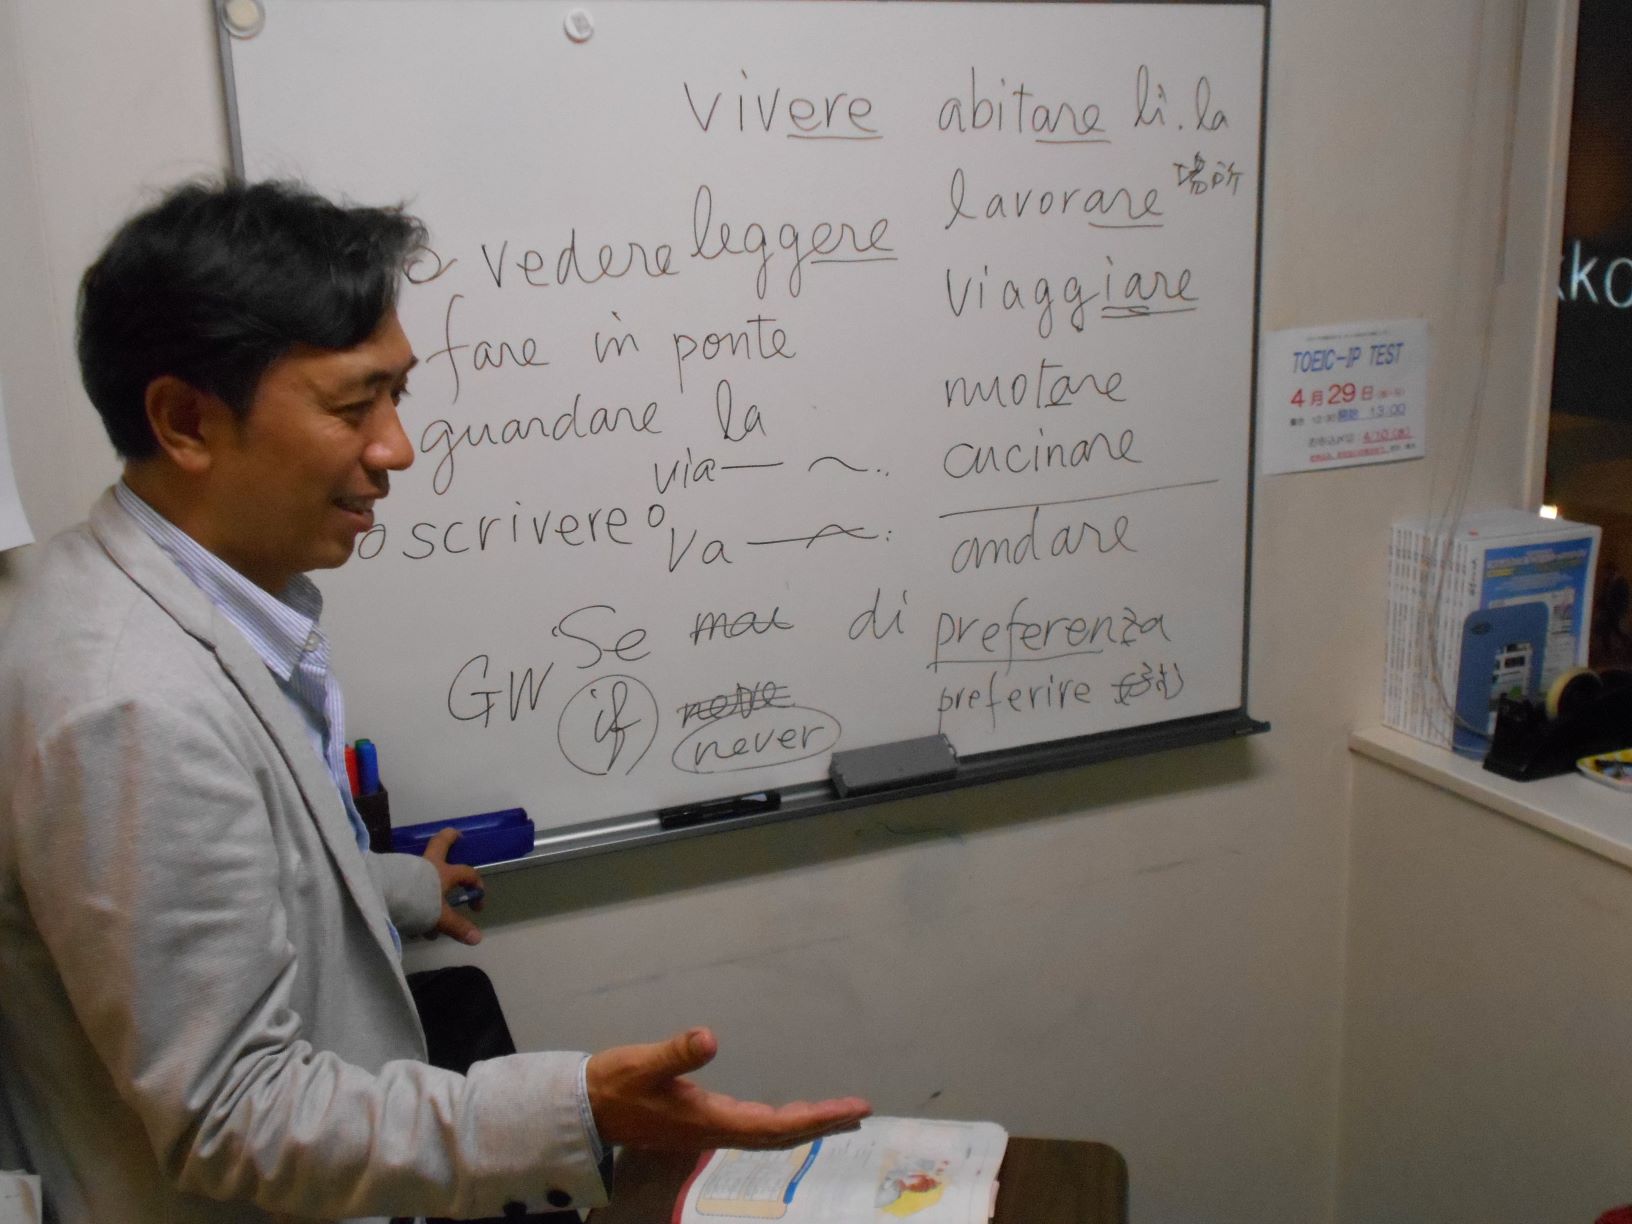 vivere abitare lì. la
lavorare 場所
vedere leggere
viaggiare
fare in ponte
nuotare
guardare la
cucinare
via
scrivere
va
andare
Se mai di preferenza
GW if never
preferire
TOEIC-IP TEST
4月29日
開始 13:00
4/10